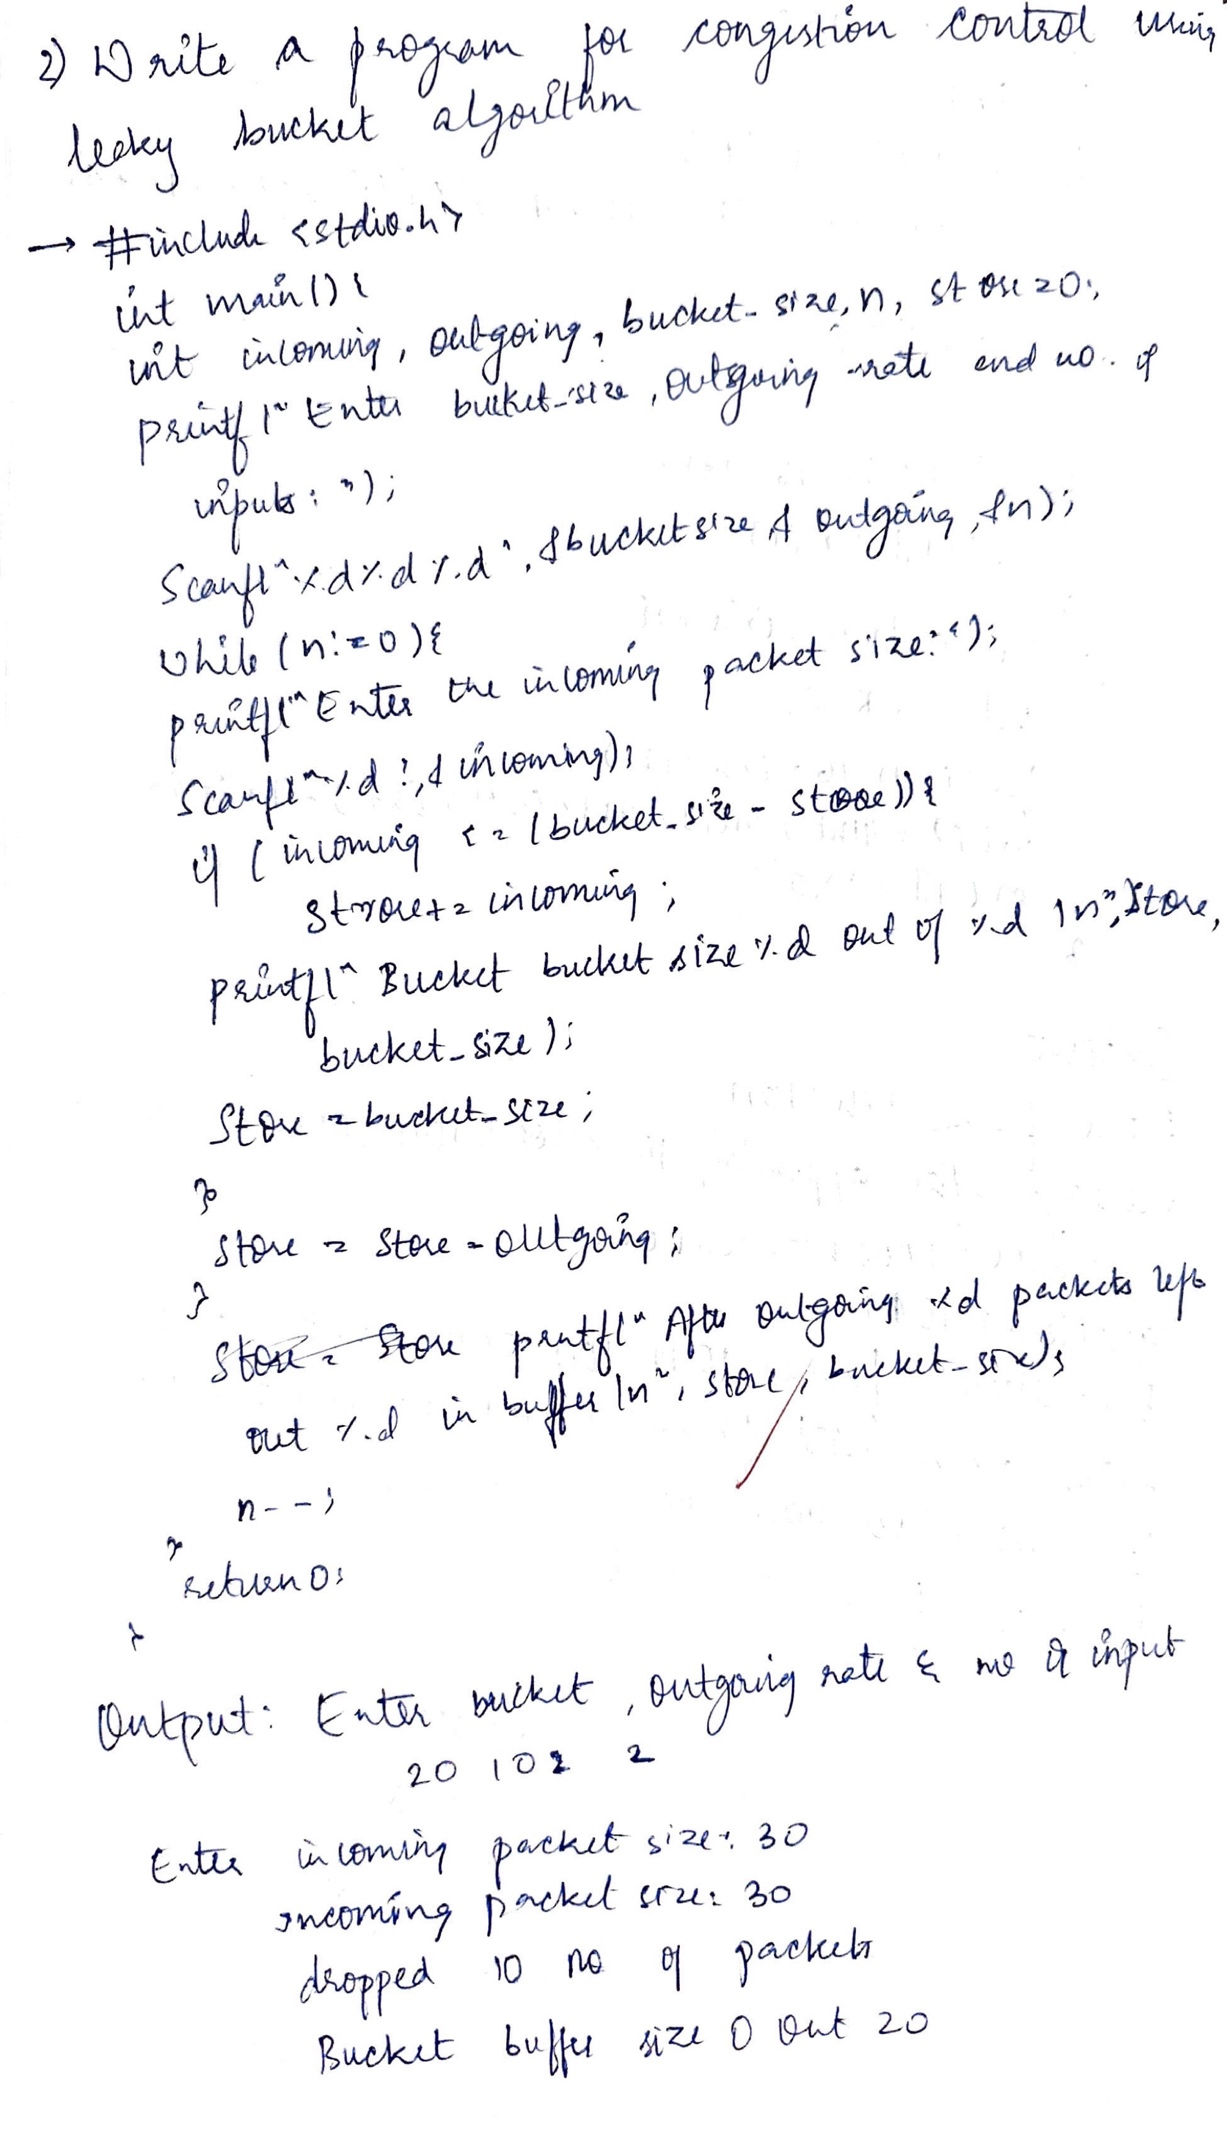 2) Write a program for congestion control using
leaky bucket algorithm
→ #include <stdio.h>
int main() {
int incoming, outgoing, bucket_size, n, store=0;
printf("Enter bucket_size, outgoing rate and no. of
inputs: ");
Scanf("%d%d%d", &bucketsize & outgoing, &n);
while (n!=0){
printf("Enter the incoming packet size:");
Scanf("%d", & incoming);
if (incoming <= (bucket_size - store)){
store+= incoming;
printf(" Bucket bucket size %d out of %d \n", store,
bucket_size);
Store = bucket_size;
}
store = store - outgoing;
}
printf("After outgoing %d packets left
out %d in buffer \n", store, bucket_size);
n--;
}
return 0;
}
Output: Enter bucket, outgoing rate & no of input
20 10 2
Enter incoming packet size: 30
incoming packet size: 30
dropped 10 no of packets
Bucket buffer size 0 out 20